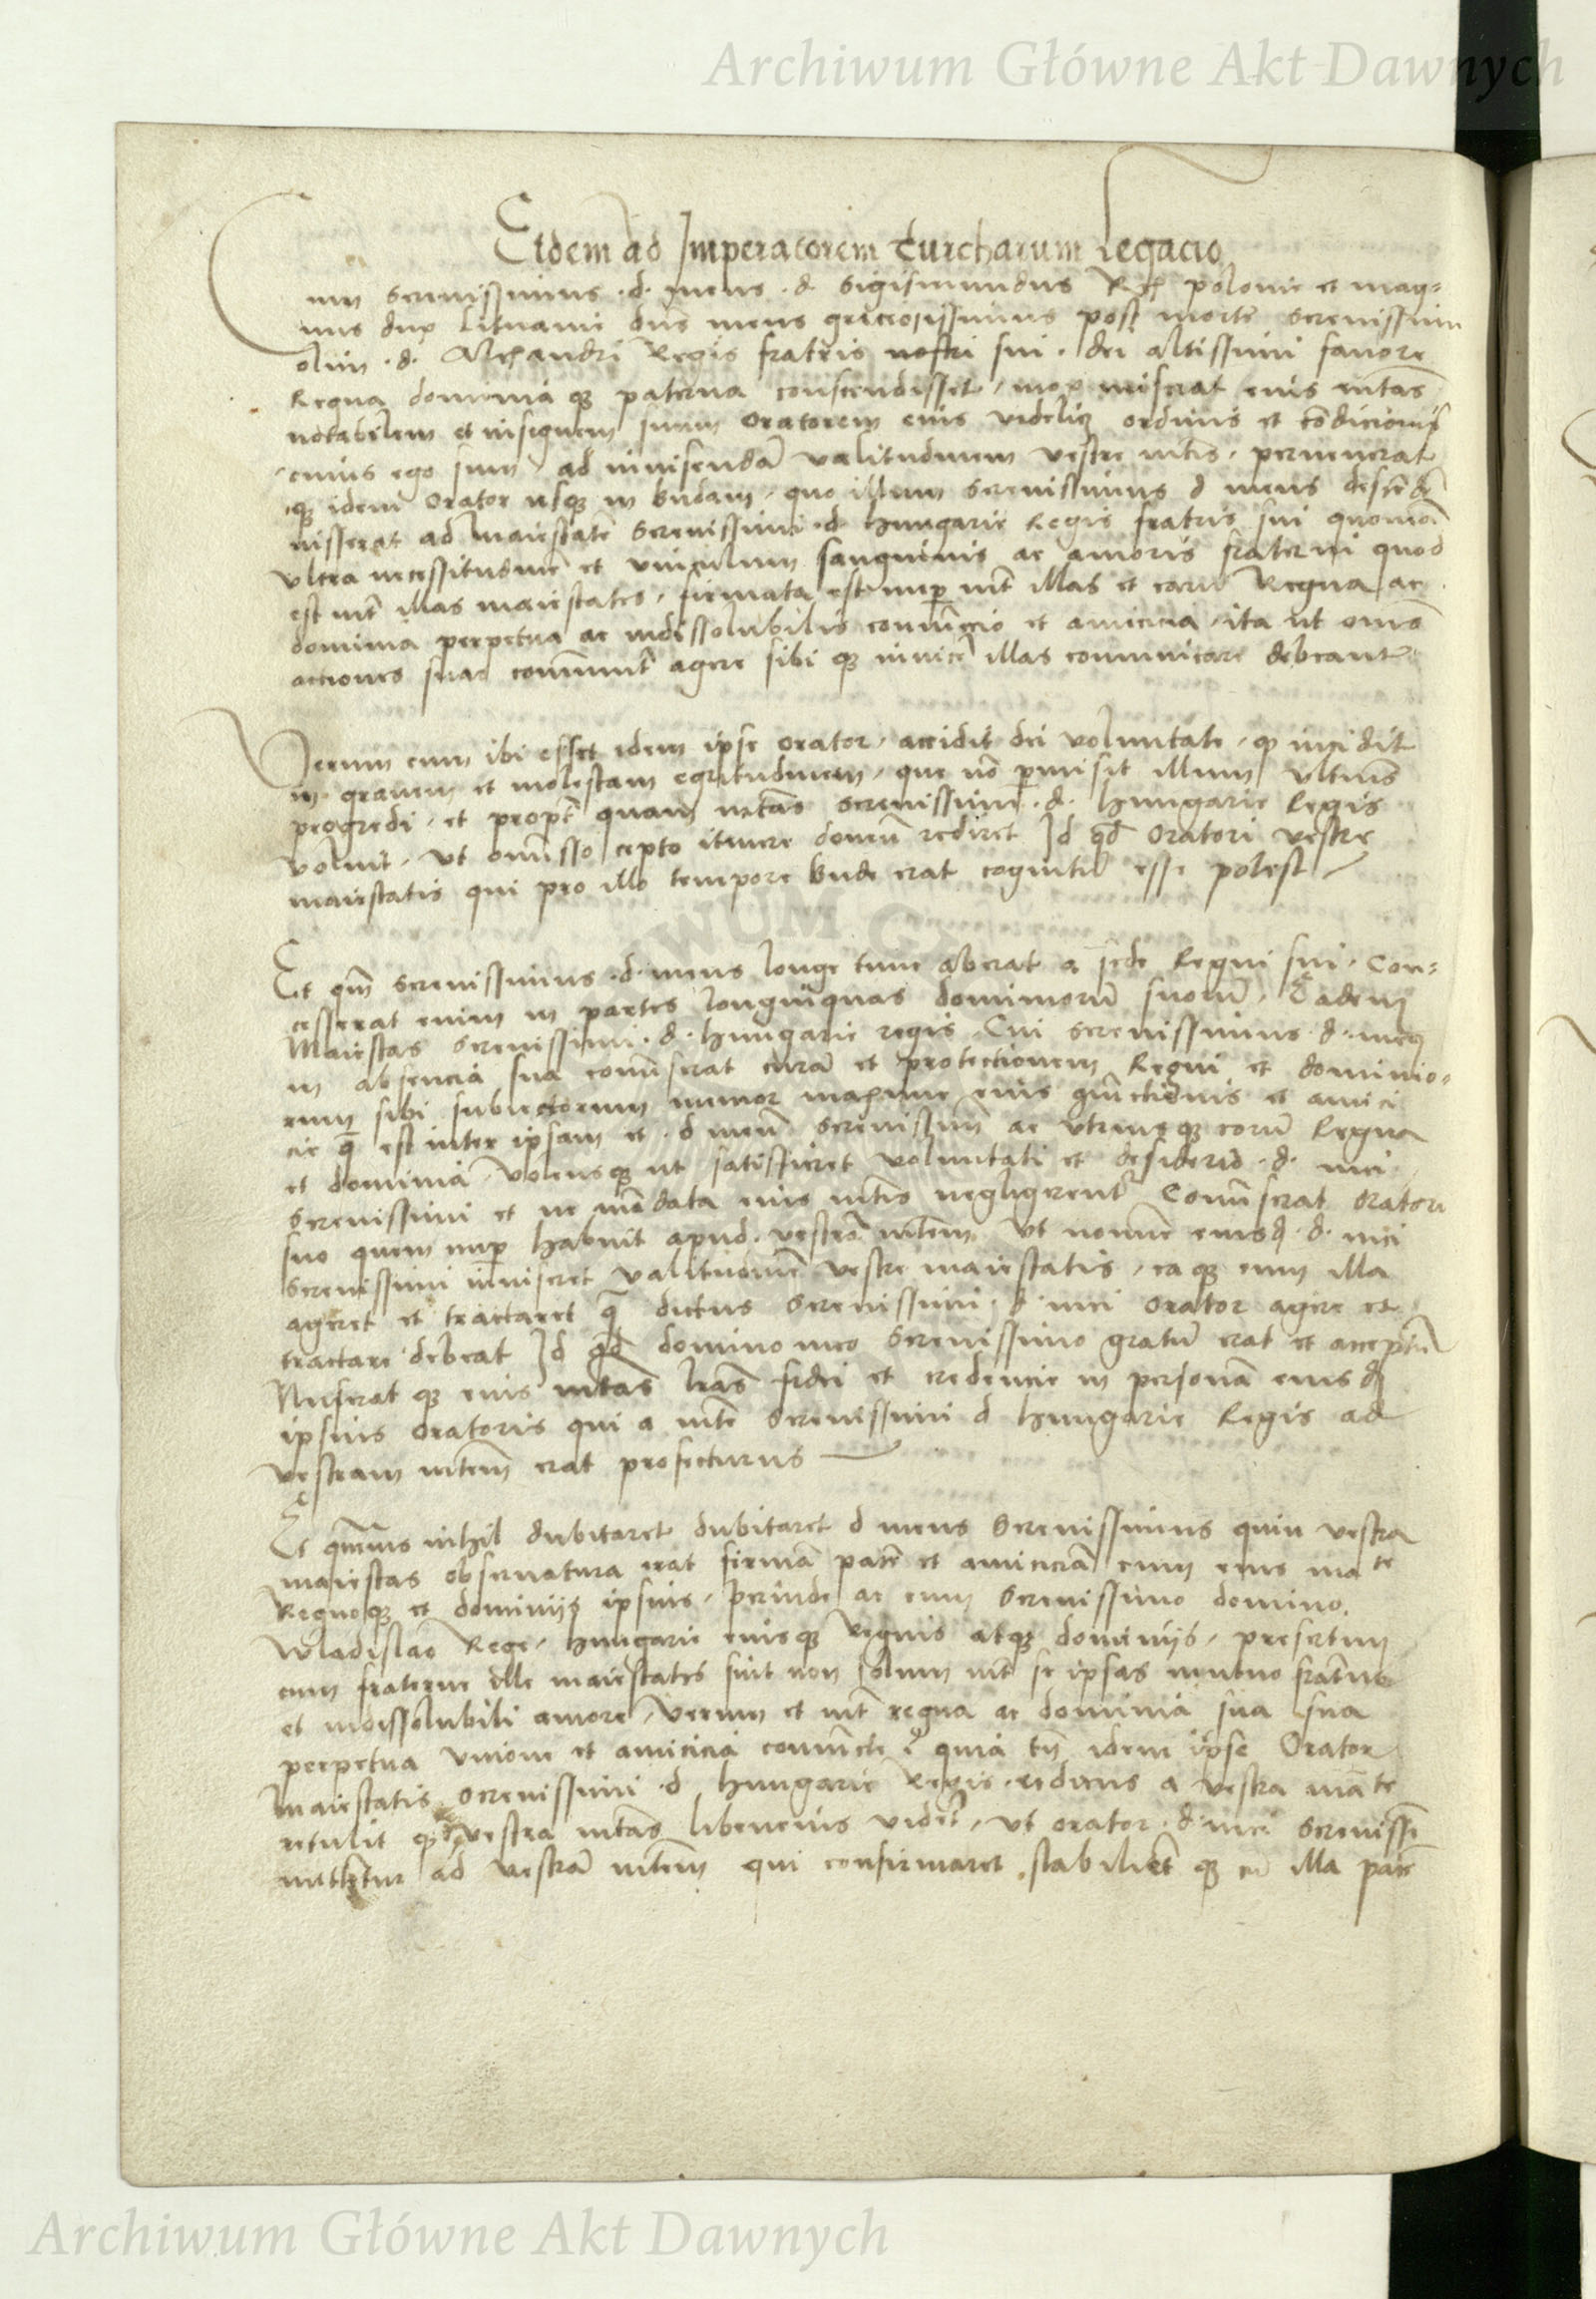 Archiwum Główne Akt Dawnych
Eidem ad Imperatorem Turcharum Legacio
Cum Serenissimus .d. meus .d. Sigismundus Rex polonie et mag=
nus dux Lituanie dns meus graciosissimus post morte Serenissimi
olim .d. Alexandri Regis fratris nostri sui . dei altissimi favore
Regna dominia qz paterna conscendisset, mox miserat eius mtas
notabilem et insignem suum Oratorem eius videlicz ordinis et condicionis
cuius ego sum, ad invisenda valitudinem vestre mtis, pervenerat
qz idem Orator usqz in budam, quo illum Serenissimus d meus
misserat ad Maiestate Serenissimi .d. hungarie Regis fratris sui quonia
ultra necessitudine et vinculum sanguinis ac amoris fraterni quod
est int illas maiestates, firmata est nup int illas et earu Regna ac
dominia perpetua ac indissolubilis coniunccio et amicicia, ita ut omes
actiones suas communit agere sibi qz invice illas comunicare debeant
Verum cum ibi esset idem ipse orator, accidit dei voluntate, qz incidit
in gravem et molestam egritudinem, que no pmisit illum ulterius
progredi, et propt quam mtas Serenissimi .d. hungarie Regis
voluit, ut omisso cepto itinere domu rediret Id qd Oratori vestre
maiestatis qui pro illo tempore bude erat cognitu esse potest
Et qm Serenissimus .d. meus longe tunc aberat a sede Regni sui, Con=
cesserat enim in partes longinquas dominioru suoru, Eadem
Maiestas Serenissimi .d. hungarie regis, Cui Serenissimus .d. meus
in absencia sua comiserat cura et protectionem Regni et dominio=
rum sibi subiectorum memor maxime eius coniunctionis et amici
cie q est inter ipsam et .d meu Serenissimu ac utriusqz eoru Regna
et dominia, volensqz ut satisfieret voluntati et desiderio .d. mei
Serenissimi et ne mandata eius mtis negligerent Comiserat Oratori
suo quem nup habuit apud vestra mtem, Ut nomine eiusd .d. mei
Serenissimi inviseret valitudine vestre maiestatis, ea qz cum illa
ageret et tractaret q dictus Serenissimi .d. mei Orator agere et
tractare debeat Id qd domino meo Serenissimo gratu erat et acceptu
Miserat qz eius mtas lras fidei et credencie in persona eiusd
ipsius Oratoris qui a mte Serenissimi d hungarie Regis ad
vestram mtem erat profecturus
Et qmvis nihil dubitaret dubitaret d meus Serenissimus quin vestra
maiestas observatura erat firma pace et amicicia cum eius mate
Regnoqz et dominijs ipsius, perinde ac cum Serenissimo domino
Wladislao Rege, hungarie eiusqz regnis atqz dominijs, presertim
cum fraterne ille maiestates sint non solum int se ipsas mutuo fraterno
et indissolubili amore, verum et int regna ac dominia sua sua
perpetua unione et amicicia coniuncte, quia tn idem ipse Orator
Maiestatis Serenissimi .d. hungarie Regis rediens a vestra mate
retulit qz vestra mtas libencius videt, ut orator .d. mei Serenissi
mittetur ad vestra mtem qui confirmaret stabiliet qz cu illa pace
Archiwum Główne Akt Dawnych